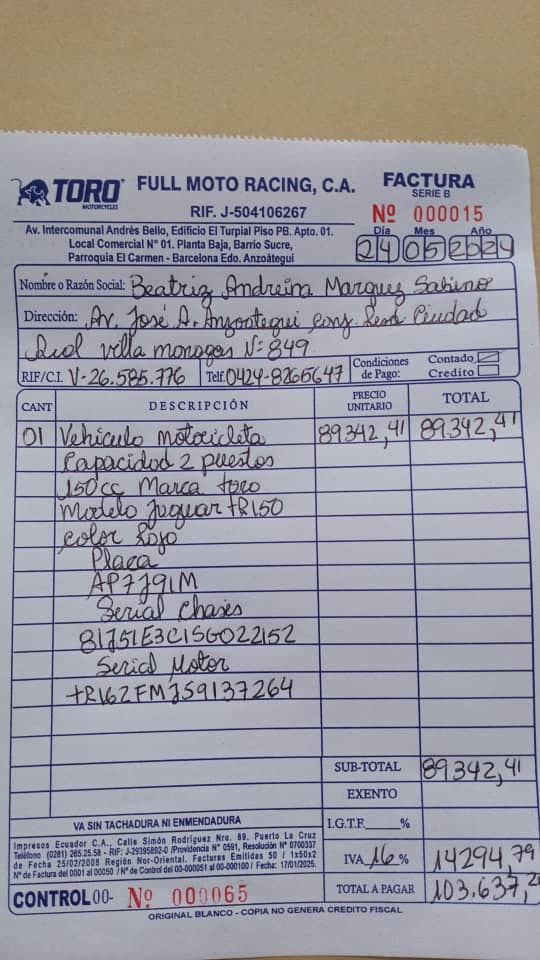 TORO
MOTORCYCLES
FULL MOTO RACING, C.A.
RIF. J-504106267
FACTURA
SERIE B
Nº 000015
Av. Intercomunal Andrés Bello, Edificio El Turpial Piso PB. Apto. 01.
Local Comercial Nº 01. Planta Baja, Barrio Sucre,
Parroquia El Carmen - Barcelona Edo. Anzoátegui
Día Mes Año
24 05 2024
Nombre o Razón Social: Beatriz Andreina Marquez Sabino
Dirección: Av. José A. Anzoategui Conj. Resd Ciudad
Real villa monagas Nº 849
RIF/C.I. V-26.585.776 Telf. 0424-8265647 Condiciones de Pago: Contado
Credito
CANT DESCRIPCIÓN PRECIO UNITARIO TOTAL
01 Vehiculo Motocicleta 89342,41 89.342,41
Capacidad 2 puestos
150cc Marca toro
Modelo Jaguar tR150
color Rojo
Placa
AP7J91M
Serial Chasis
81J51E3C1SG022152
Serial Motor
tR162FMJS9137264
SUB-TOTAL 89342,41
EXENTO
VA SIN TACHADURA NI ENMENDADURA
I.G.T.F.____%
Impresos Ecuador C.A., Calle Simón Rodríguez Nro. 89. Puerto La Cruz
Teléfono (0281) 265.25.58 - RIF: J-29395892-0 /Providencia Nº 0591, Resolución Nº 0700337
de Fecha 25/02/2008 Región Nor-Oriental. Facturas Emitidas 50 / 1x50x2
Nº de Factura del 0001 al 00050 / Nº de Control del 00-000051 al 00-000100 / Fecha: 17/01/2025.
IVA 16 % 14294,79
CONTROL 00- Nº 000065
TOTAL A PAGAR 103.637,2
ORIGINAL BLANCO - COPIA NO GENERA CREDITO FISCAL